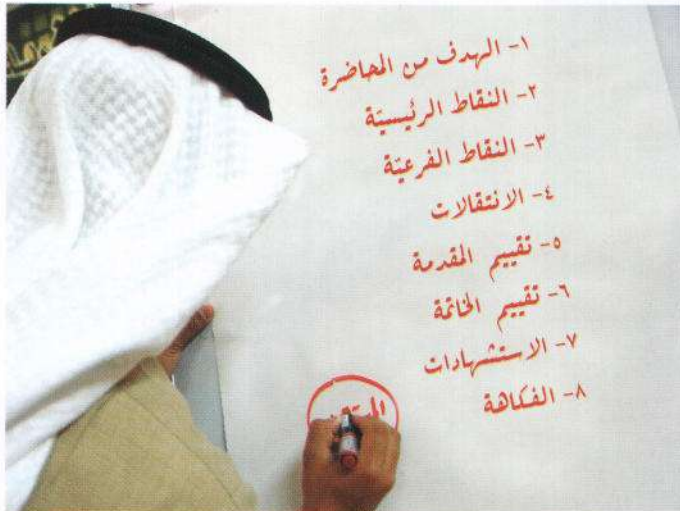 ١- الهدف من المحاضرة
٢- النقاط الرئيسيّة
٣- النقاط الفرعيّة
٤- الانتقالات
٥- تقييم المقدمة
٦- تقييم الخاتمة
٧- الاستشهادات
٨- الفكاهة